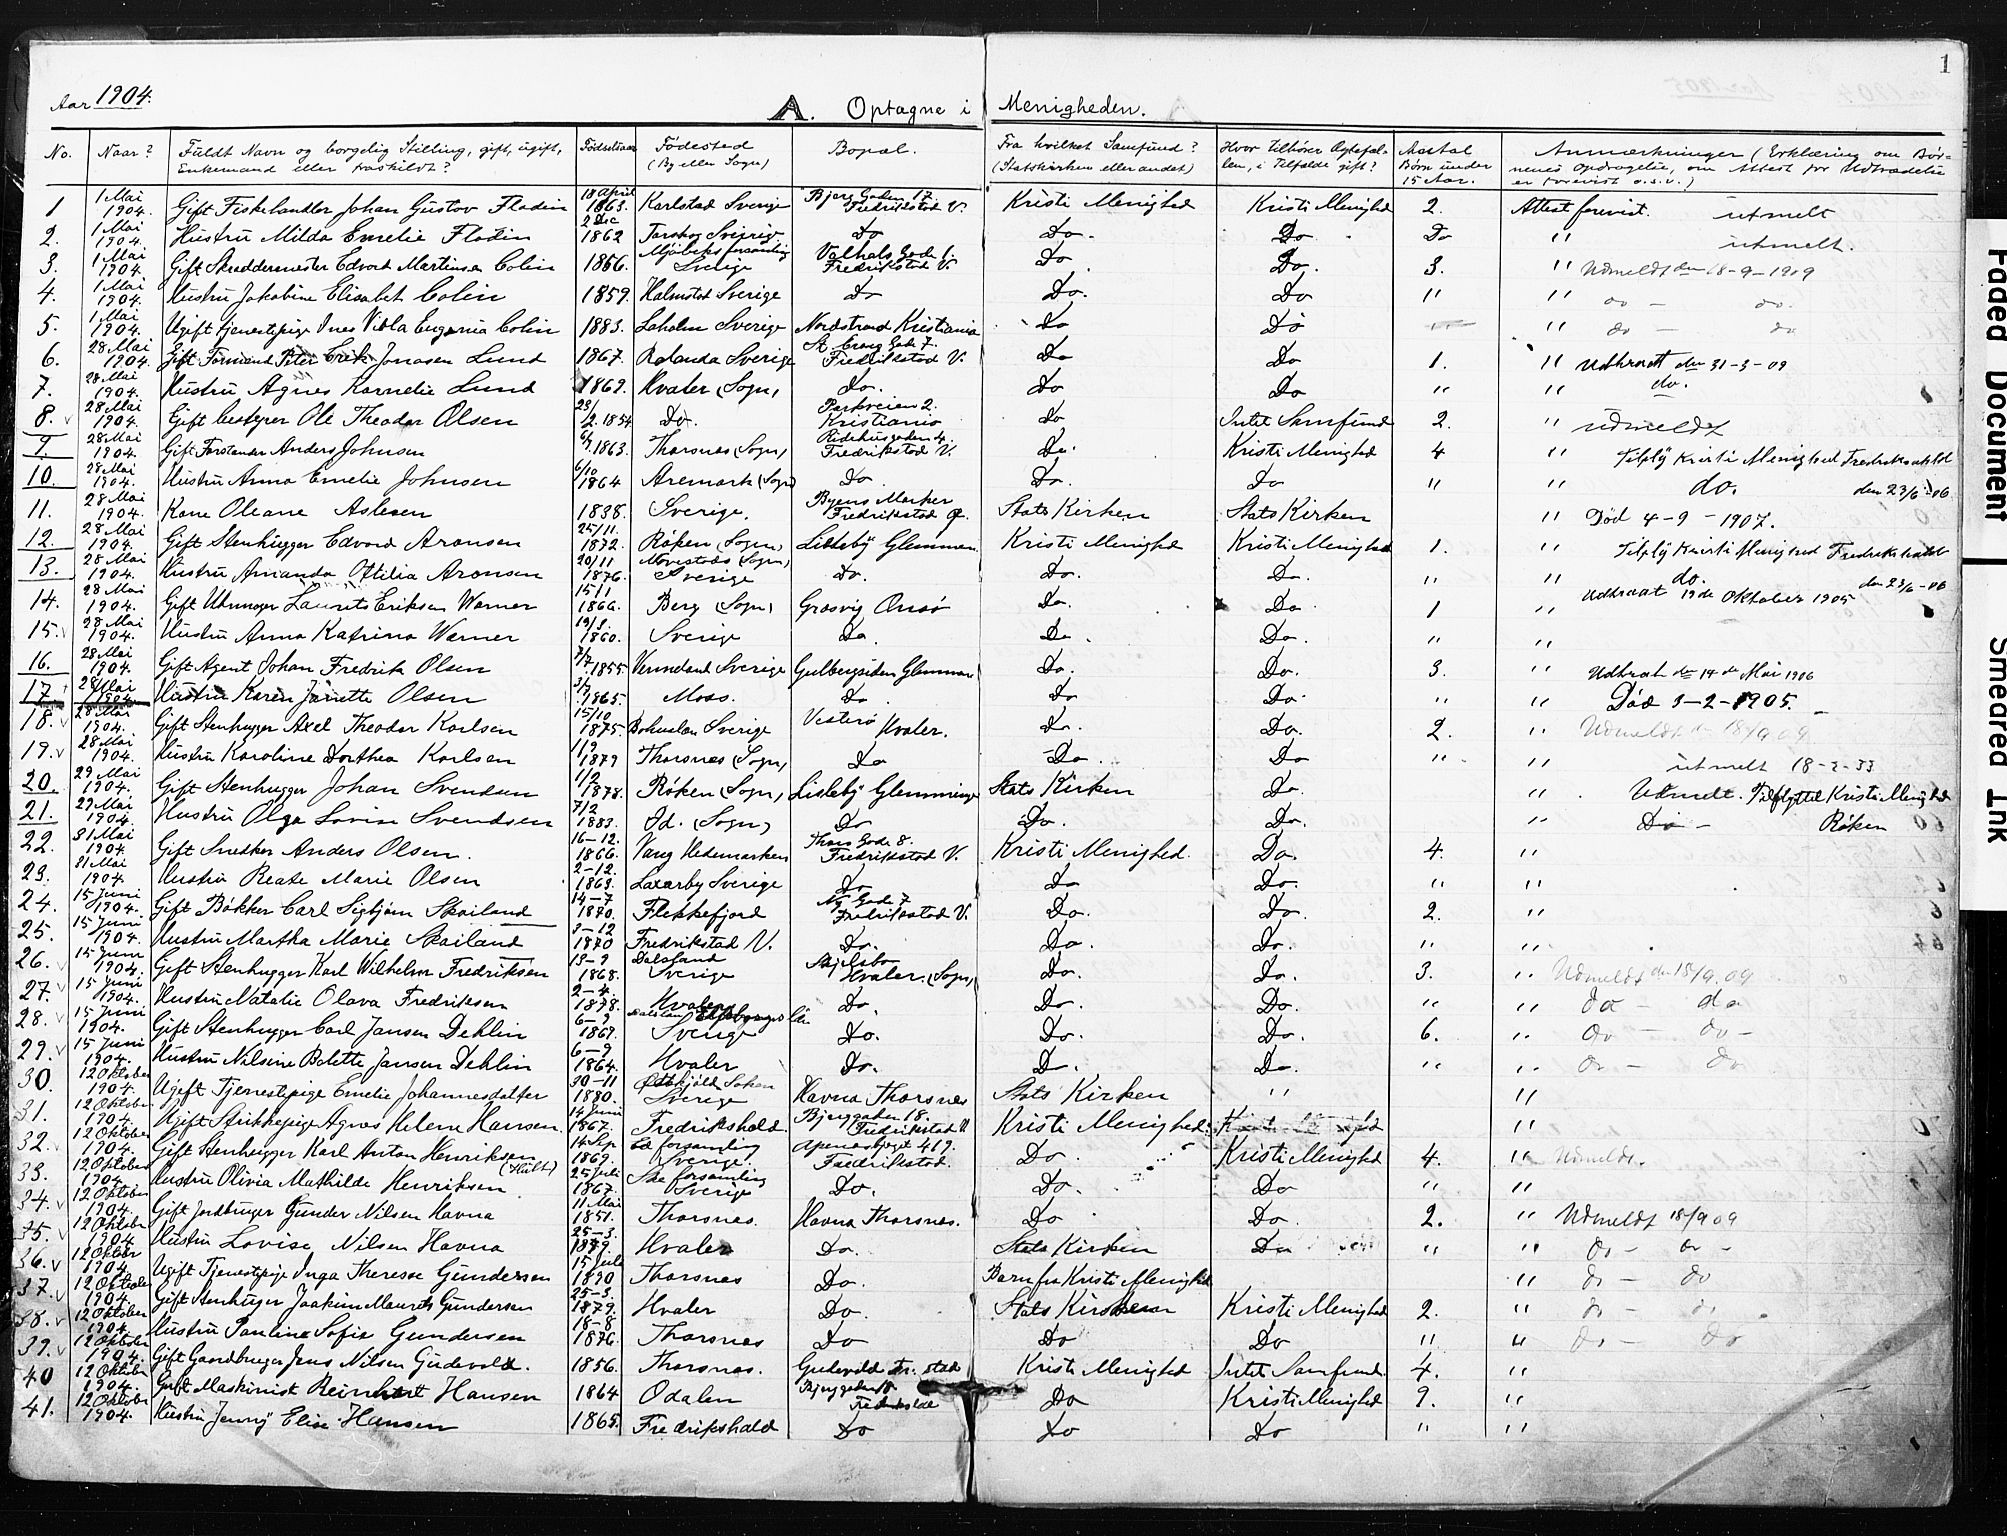 1
Aar 1904.
A. Optagne i Menigheden.
No. Naar? Fuldt Navn og borgelig Stilling, gift, ugift, Enkemand eller fraskildt? Fødselsaar Fødested (By eller Sogn) Bopæl. Fra hvilket Samfund? (Statskirken eller andet) Hvor tilhører Ægtefæl-len, i Tilfælde gift? Antal Børn under 15 Aar. Anmærkninger (Erklæring om Bør-nenes Opdragelse, om Attest for Udtrædelse er forevist o.s.v.)
1 1 Mai 1904. Gift Fiskehandler Johan Gustav Flodin 18 April 1863. Karlstad Sverige Bjerg Gaden 17. Fredrikstad V. Kristi Menighed Kristi Menighed 2. Attest forevist. utmelt
2. 1 Mai 1904. Hustru Milda Emelie Flodin 2 Dec 1862 Sverige Do Do. Do. Do " utmelt.
3. 1 Mai 1904. Gift Skreddermester Edvart Martinsen Colin 1866. Sverige Valhals Gade 1. Fredrikstad V. Do Do. 3. " Udmeldt den 18-9-1909
4. 1 Mai 1904. Hustru Jakobine Elisabet Colin 1859. Halmstad Sverige Do Do. Do " " do - do.
5. 1 Mai 1904. Ugift tjenestepige Ines Viola Eugenia Colin 1883. Laholm Sverige Nordstrand Kristiania Do Do " " do - do
6. 28 Mai 1904. Gift Formand Peter Erik Jonasen Lund 1867. Rolanda Sverige St. Croix Gade 7. Fredrikstad V. Do Do 1. " Udtraadt den 31-3-09
7. 28 Mai 1904. Hustru Agnes Kornelie Lund 1869. Hvaler (Sogn) Do. Do Do " " do.
8. v 28 Mai 1904. Gift bestyrer Ole Theodor Olsen 23/2. 1854 Do. Parkveien 2. Kristiania Do Intet Samfund 2. " udmeldt
9. 28 Mai 1904. Gift Forstander Anders Johnsen 1863. Thorsnes (Sogn) Ridehusgaden 4. Fredrikstad V. Do. Kristi Menighed 4 " Tilfly Kristi Menighed Fredrikshald
10. 28 Mai 1904. Hustru Anna Emelie Johnsen 6/10 1864 Aremark (Sogn) Do. Do. Do " " do. den 23/6-06
11. 28 Mai 1904. Kone Oleane Aslesen 1838. Sverige. Byens Marker Fredrikstad Stats Kirken Stats Kirken " Død 4-9-1907.
12. 28 Mai 1904. Gift Stenhugger Edvard Aronsen 25/11 1872. Røken (Sogn) Lisleby Glemmen. Kristi Menighed Kristi Menighed 1. " Tilfly Kristi Menighed Fredrikshald
13. 28 Mai 1904. Hustru Amanda Otilia Aronsen 20/11 1876. (Sogn) Sverige Do. Do. Do. " " do. den 23/6-06
14. 28 Mai 1904. Gift Uhrmager Laurits Eriksen Warner 15/1 1866. Berg (Sogn) Græsvig Onsø Do. Do. 1 " Udtraat 19de Oktober 1905
15. v 28 Mai 1904. Hustru Anna Katrina Warner 1860. Sverige Do. Do. Do. " "
16. 28 Mai 1904. Gift Agent Johan Fredrik Olsen 1855. Vermland Sverige Gulbergsiden Glemmen Do. Do. 3. " Udtraat den 14de Mai 1906
17. 28 Mai 1904 Hustru Karen Janette Olsen 1865. Moss. Do. Do Do. " " Død 3-2-1905.
18. v 28 Mai 1904. Gift Stenhugger Axel Theodor Karlsen 15/10 1875. Bohuslen Sverige Vesterø Hvaler. Do. Do. 2. " Udmeldt 18/9 09
19. v 28 Mai 1904. Hustru Karoline Dorthea Karlsen 1/9 1879 Thorsnes (Sogn) Do Do. Do " " utmelt 18-2-33
20. 29 Mai 1904. Gift Stenhugger Johan Svendsen 1/2 1878. Røken (Sogn) Lisleby Glemminge Stats Kirken Do. " Utmeldt. Tilflyttet Kristi Menighed
21. 29 Mai 1904. Hustru Olga Lovise Svendsen 7/2 1883. Id. (Sogn) Do Do. Do. " Do - Røken
22. 31 Mai 1904. Gift Snedker Anders Olsen. 16-12. 1866. Vang Hedemarken Thors Gade 8. Fredrikstad V. Kristi Menighed. Do. 4. "
23. 31 Mai 1904. Hustru Beate Marie Olsen 2-12. 1863. Laxarby Sverige Do Do Do. " "
24. 15 Juni 1904. Gift Bøkker Carl Sigbjørn Skailand 14-7 1870. Flekkefjord Ny Gade 7 Fredrikstad V. Do. Do. 2. "
25. 15 Juni 1904. Hustru Martha Marie Skailand 3-12 1870 Fredrikstad V. Do. Do. Do. " "
26. v 15 Juni 1904. Gift Stenhugger Karl Wilhelm Fredriksen 13-9 1868. Dalsland Sverige Skjelsbo Hvaler. (Sogn) Do. Do. 3. " Udmeldt den 18/9. 09
27. v 15 Juni 1904. Hustru Natalie Olava Fredriksen 2-4. 1878. Hvaler Do. Do. Do. " " do - do
28. v 15 Juni 1904. Gift Stenhugger Carl Jansen Dehlin 6-9 1869. Sverige Do. Do. Do. 6. " do - do -
29. v 15 Juni 1904. Hustru Nilsine Bolette Jansen Dehlin 6-9 1864. Hvaler Do. Do. Do. " " do - do
30. 12 Oktober 1904. Ugift Tjenestepige Emelie Johannesdatter 30-11 1880. Sverige Havna Thorsnes Stats Kirken " "
31. 12 Oktober 1904. Ugift Strikkepige Agnes Helene Hansen. 14 Juni 1867. Fredrikshald Bjerggaden 18. Fredrikstad V Kristi Menighed. "
32. v 12 Oktober 1904. Gift Stenhugger Karl Anton Henriksen (Hult) 14 Sep 1869. forsamling Sverige. Apenesfjeret 469. Fredrikstad. Do. Kristi Menighed 4. " Udmeldt.
33. 12 Oktober 1904. Hustru Olivia Mathilde Henriksen 25 Juli 1867. forsamling Sverige Do. Do. Do " "
34. v 12 Oktober 1904. Gift Jordbruger Gunder Nilsen Havna 11 Mai 1851. Thorsnes. Havna Thorsnes. Do Do. 2. " Udmeldt 18/9 09
35. v 12 Oktober 1904. Hustru Lovise Nilsen Havna 25-3. Hvaler Do. Stats Kirken Do " " do - do -
36. v 12 Oktober 1904. Ugift Tjenestepige Inga Therese Gundersen 15 Juli 1890 Thorsnes Do. Barn fra Kristi Menighed " do - do
37. v 12 Oktober 1904. Gift Stenhuger Joakim Maurets Gundersen 25-3. 1879. Hvaler Do. Stats Kirken Kristi Menighed 2. " do - do
38. v 12 Oktober 1904. Hustru Pauline Sofie Gundersen 18-8 1876. Thorsnes Do Do Do " " do - do
39. v 12 Oktober 1904. Gift Gaardbruger Jens Nilsen Gudevold. 1856. Thorsnes. Gudevold Kristi Menighed Intet Samfund. 4. "
40 12 Oktober 1904. Gift Maskinist Reinhart Hansen 1864 Odalen Bjerggaden Do Kristi Menighed 9. "
41. 12 Oktober 1904. Hustru Jenny Elise Hansen 1865. Fredrikshald Do Do Do " "
Faded Document
Smeared Ink